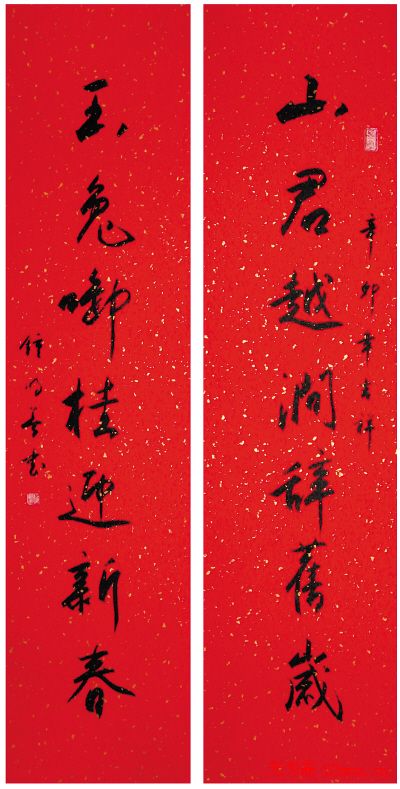 山君越澗辭舊歲
辛卯年吉祥
玉兔啣桂迎新春